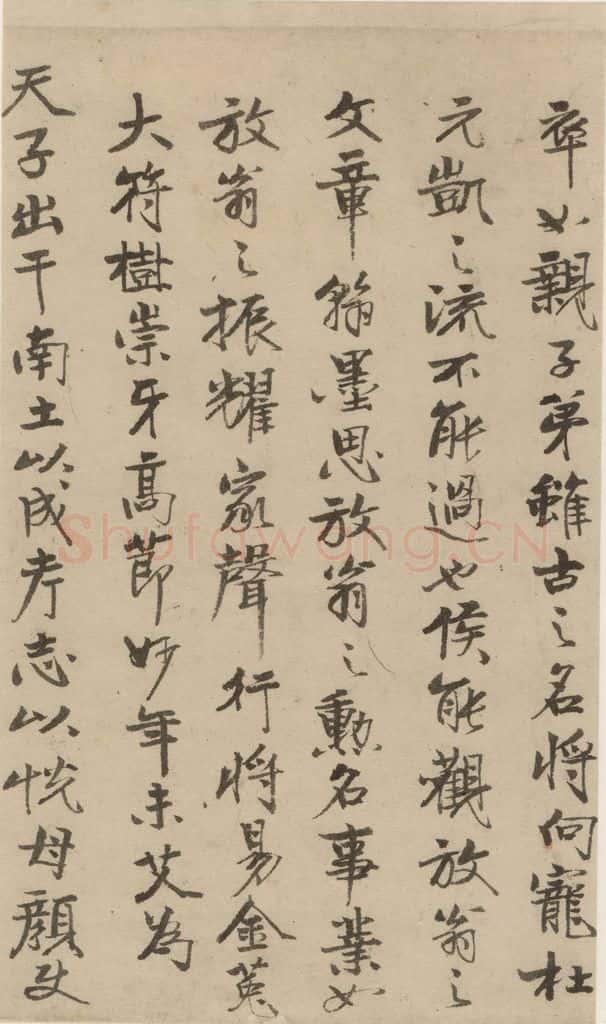 卒如親子弟雖古之名將向寵杜
元凱之流不能過也侯能觀放翁之
文章翰墨思放翁之勳名事業如
放翁之振耀家聲行將易金菟
大符樹崇牙高節妙年未艾為
天子出干南土以成考志以悅母顏史
Shufawang.CN